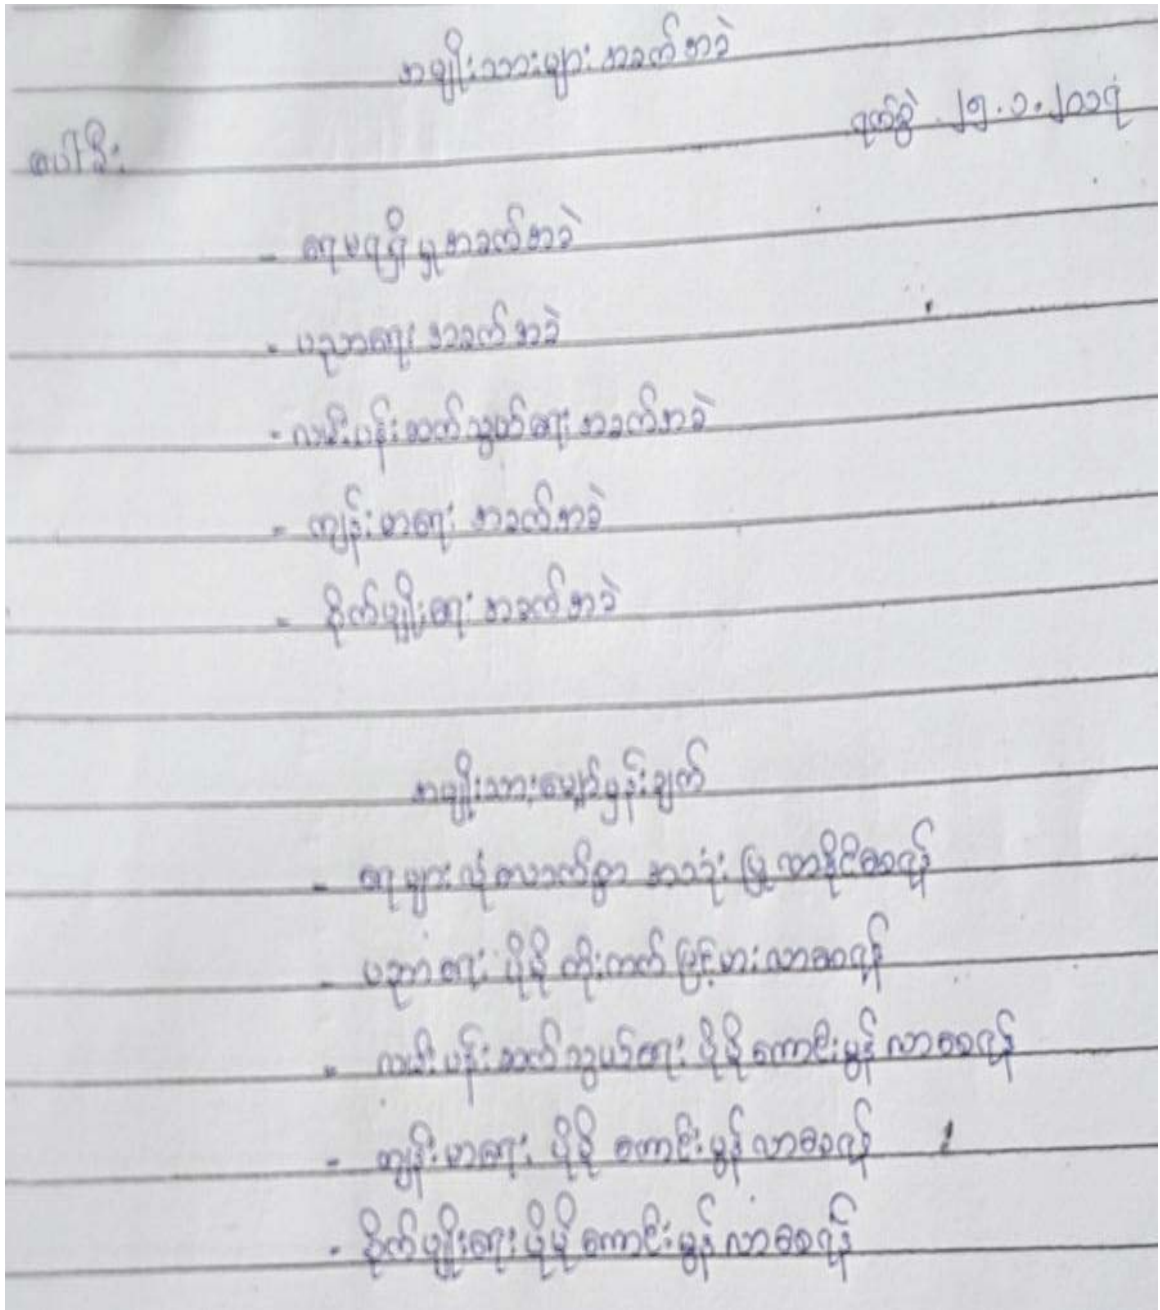 အမျိုးသားများ အခက်အခဲ
ရက်စွဲ ၂၅.၁.၂၀၁၇
ပေါခိုး
- ရေမရရှိမှုအခက်အခဲ
- ပညာရေး အခက်အခဲ
- လမ်းပန်းဆက်သွယ်ရေး အခက်အခဲ
- ကျန်းမာရေး အခက်အခဲ
- စိုက်ပျိုးရေး အခက်အခဲ
အမျိုးသားမျှော်မှန်းချက်
- ရေများလုံလောက်စွာ အသုံးပြုလာနိုင်စေရန်
- ပညာရေး ပိုမို တိုးတက်မြင့်မားလာစေရန်
- လမ်းပန်းဆက်သွယ်ရေး ပိုမိုကောင်းမွန်လာစေရန်
- ကျန်းမာရေး ပိုမို ကောင်းမွန်လာစေရန်
- စိုက်ပျိုးရေး ပိုမိုကောင်းမွန်လာစေရန်